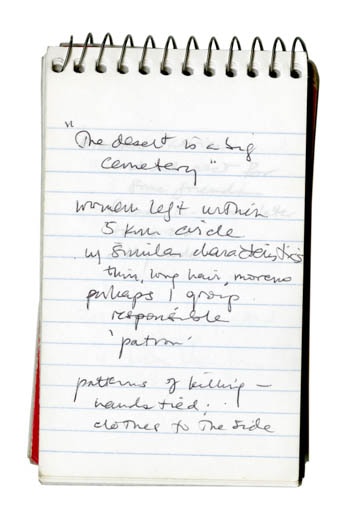 "The desert is a big
cemetery"
women left within
5 km circle
w/ similar characteristics
thin, long hair, moreno
perhaps 1 group
responsible
'patron'
patterns of killing —
hands tied;
clothes to the side